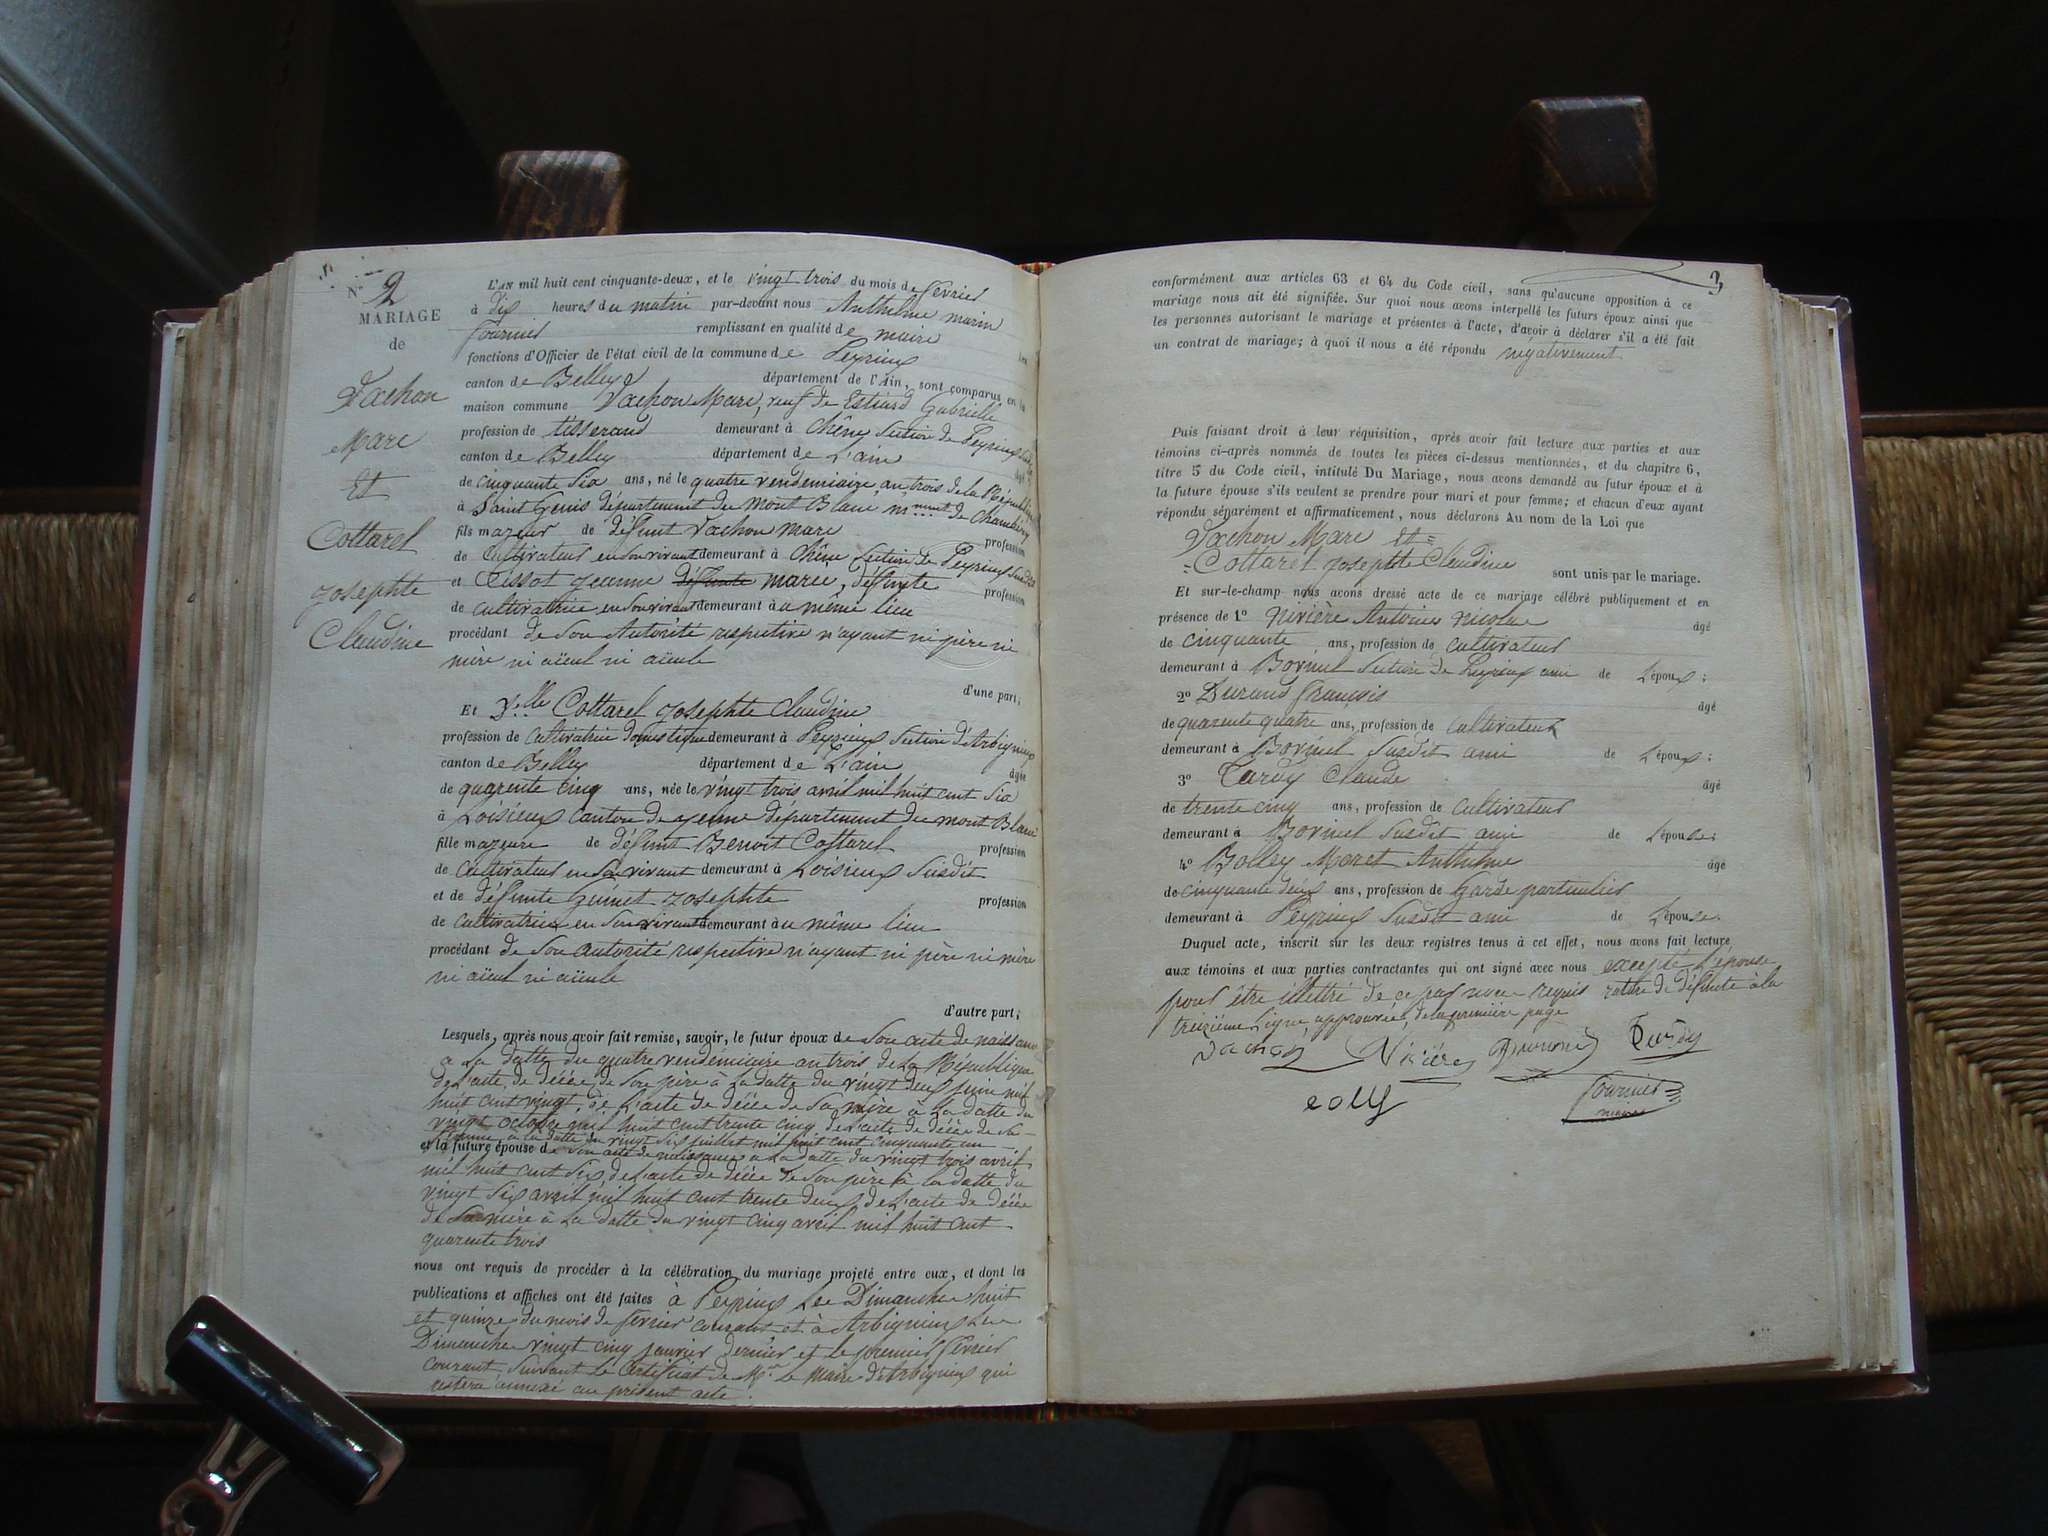 N° 2
MARIAGE
de
Vachon
Marc
Et
Cottarel
Josephte
Claudine
L'AN mil huit cent cinquante-deux, et le vingt trois du mois de fevrier
à dix heures du matin par-devant nous Anthelme marin
fournier remplissant en qualité de maire les
fonctions d'Officier de l'état civil de la commune de Peyrieux
canton de Belley département de l'Ain, sont comparus en la
maison commune Vachon Marc, veuf de Gabrielle
profession de tisserand demeurant à Chêne Section de Peyrieux
canton de Belley département de L'ain âgé
de cinquante six ans, né le quatre vendemiaire an trois de la République
à Saint Genis département du Mont Blanc de Chambéry
fils majeur de défunt Vachon marc profession
de Cultivateur en son vivant demeurant à Chêne Section de Peyrieux Susdit
et Tissot Jeanne défunte marie, défunte profession
de cultivatrice en son vivant demeurant à au même lieu
procédant de son Autorité respective n'ayant ni père ni
mère ni aïeul ni aïeule
d'une part;
Et Delle Cottarel Josephte Claudine
profession de Cultivatrice domestique demeurant à Peyrieux Section d'Arbignieux
canton de Belley département de L'ain âgée
de quarente cinq ans, née le vingt trois avril mil huit cent six
à Loisieux Canton de yenne département du mont Blanc
fille majeure de défunt Benoit Cottarel profession
de Cultivateur en son vivant demeurant à Loisieux Susdit
et de défunte Guinet Josephte profession
de cultivatrice en son vivant demeurant à au même lieu
procédant de son autorité respective n'ayant ni père ni mère
ni aïeul ni aïeule
d'autre part;
Lesquels, après nous avoir fait remise, savoir, le futur époux de Son acte de naissance
a La datte du quatre vendemiaire an trois de La République
de L'acte de décée de Son père à La datte du vingt deux juin mil
huit cent vingt, de L'acte de décée de Sa mère à La datte du
vingt octobre mil huit cent trente cinq de L'acte de décée de Sa
femme a la datte du vingt Six juillet mil huit cent cinquante un
et la future épouse de Son acte de naissance a La datte du vingt trois avril
mil huit cent Six, de L'acte de décée de Son père à la datte du
vingt Six avril mil huit cent trente deux de L'acte de décée
de Sa mère à La datte du vingt cinq avril mil huit cent
quarente trois
nous ont requis de procéder à la célébration du mariage projeté entre eux, et dont les
publications et affiches ont été faites à Peyrieux Les Dimanches huit
et quinze du mois de fevrier courant et à Arbignieux Les
Dimanches vingt cinq janvier dernier et le premier fevrier
courant, Suivant Le Certificat de Mr Le Maire d'Arbignieux qui
restera annexé au présent acte.
3
conformément aux articles 63 et 64 du Code civil, sans qu'aucune opposition à ce
mariage nous ait été signifiée. Sur quoi nous avons interpellé les futurs époux ainsi que
les personnes autorisant le mariage et présentes à l'acte, d'avoir à déclarer s'il a été fait
un contrat de mariage; à quoi il nous a été répondu négativement
Puis faisant droit à leur réquisition, après avoir fait lecture aux parties et aux
témoins ci-après nommés de toutes les pièces ci-dessus mentionnées, et du chapitre 6,
titre 5 du Code civil, intitulé Du Mariage, nous avons demandé au futur époux et à
la future épouse s'ils veulent se prendre pour mari et pour femme; et chacun d'eux ayant
répondu séparément et affirmativement, nous déclarons Au nom de la Loi que
Vachon Marc et =
= Cottarel Josephte Claudine sont unis par le mariage.
Et sur-le-champ nous avons dressé acte de ce mariage célébré publiquement et en
présence de 1° Nivière Antoine Nicolas âgé
de cinquante ans, profession de cultivateur
demeurant à Borinel Section de Peyrieux ami de L'époux;
2° Durand françois âgé
de quarente quatre ans, profession de Cultivateur
demeurant à Borinel Susdit ami de L'époux;
3° Tardy Claude âgé
de trente cinq ans, profession de Cultivateur
demeurant à Borinel Susdit ami de L'épouse;
4° Bolley Moret Anthelme âgé
de cinquante deux ans, profession de Garde particulier
demeurant à Peyrieux Susdit ami de L'épouse.
Duquel acte, inscrit sur les deux registres tenus à cet effet, nous avons fait lecture
aux témoins et aux parties contractantes qui ont signé avec nous excepté L'épouse
pour être illettré de ce par nous requis rature de défunte à la
treizième Ligne, approuvée, de la première page
Vachon Nivière Tardy
fournier
maire